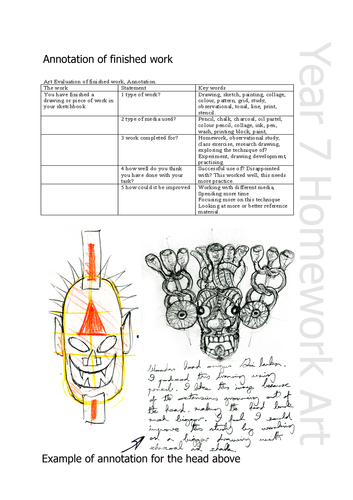 Annotation of finished work
Art Evaluation of finished work, Annotation
The work Statement Key words
You have finished a drawing or piece of work in your sketchbook 1 type of work? Drawing, sketch, painting, collage,
colour, pattern, grid, study,
observational, tonal, line, print,
stencil
2 type of media used? Pencil, chalk, charcoal, oil pastel,
colour pencil, collage, ink, pen,
wash, printing block, paint,
3 work completed for? Homework, observational study,
class exercise, research drawing,
exploring the technique of?
Experiment, drawing development,
practising
4 how well do you think you have done with your task? Successful use of? Disappointed
with? This worked well, this needs
more practice.
5 how could it be improved Working with different media,
Spending more time
Focusing more on this technique
Looking at more or better reference
material
Year 7 Homework Art
Wooden head Sri lankan.
I produced this drawing using
pencil. I like this image because
of the extensions growing out of
the head, making the head look
much bigger. I feel I could
improve this study by working
on a bigger drawing with
charcoal or chalk
Example of annotation for the head above